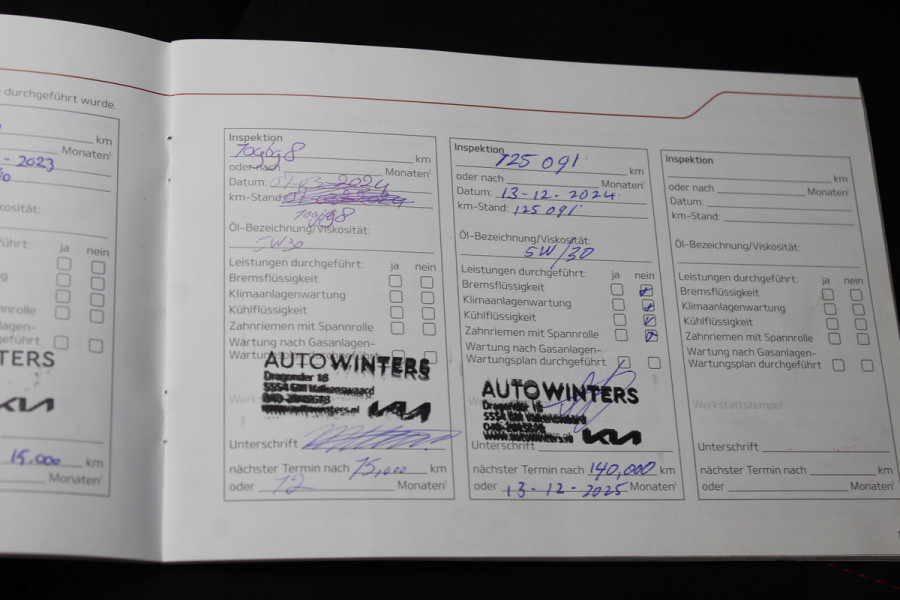 durchgeführt wurde.
km
- 2023 Monaten¹
viskosität:
führt:
ja nein
nrolle
lagen-
geführt
NTERS
KIA
15.000 km
Monaten¹
Inspektion
km
oder nach Monaten¹
Datum: 07-03-2024
km-Stand:
Öl-Bezeichnung/Viskosität:
5W30
Leistungen durchgeführt: ja nein
Bremsflüssigkeit
Klimaanlagenwartung
Kühlflüssigkeit
Zahnriemen mit Spannrolle
Wartung nach Gasanlagen-
Wartungsplan durchgeführt
AUTOWINTERS
Dragonder 18
5554 GM Valkenswaard
www.autowinters.nl KIA
Unterschrift
nächster Termin nach 15,000 km
oder 12 Monaten¹
Inspektion
125 091 km
oder nach Monaten¹
Datum: 13-12-2024
km-Stand: 125 091
Öl-Bezeichnung/Viskosität:
5W/30
Leistungen durchgeführt: ja nein
Bremsflüssigkeit
Klimaanlagenwartung
Kühlflüssigkeit
Zahnriemen mit Spannrolle
Wartung nach Gasanlagen-
Wartungsplan durchgeführt
AUTOWINTERS
Dragonder 18
5554 GM Valkenswaard
www.autowinters.nl KIA
Unterschrift
nächster Termin nach 140,000 km
oder 13-12-2025 Monaten¹
Inspektion
km
oder nach Monaten¹
Datum:
km-Stand:
Öl-Bezeichnung/Viskosität:
Leistungen durchgeführt: ja nein
Bremsflüssigkeit
Klimaanlagenwartung
Kühlflüssigkeit
Zahnriemen mit Spannrolle
Wartung nach Gasanlagen-
Wartungsplan durchgeführt
Werkstattstempel
Unterschrift
nächster Termin nach km
oder Monaten¹